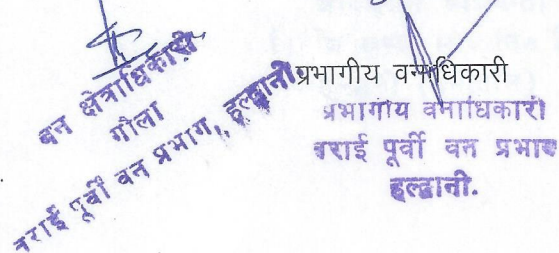 वन क्षेत्राधिकारी
गौला
तराई पूर्वी वन प्रभाग, हल्द्वानी.
प्रभागीय वनाधिकारी
प्रभागीय वनाधिकारी
तराई पूर्वी वन प्रभाग
हल्द्वानी.